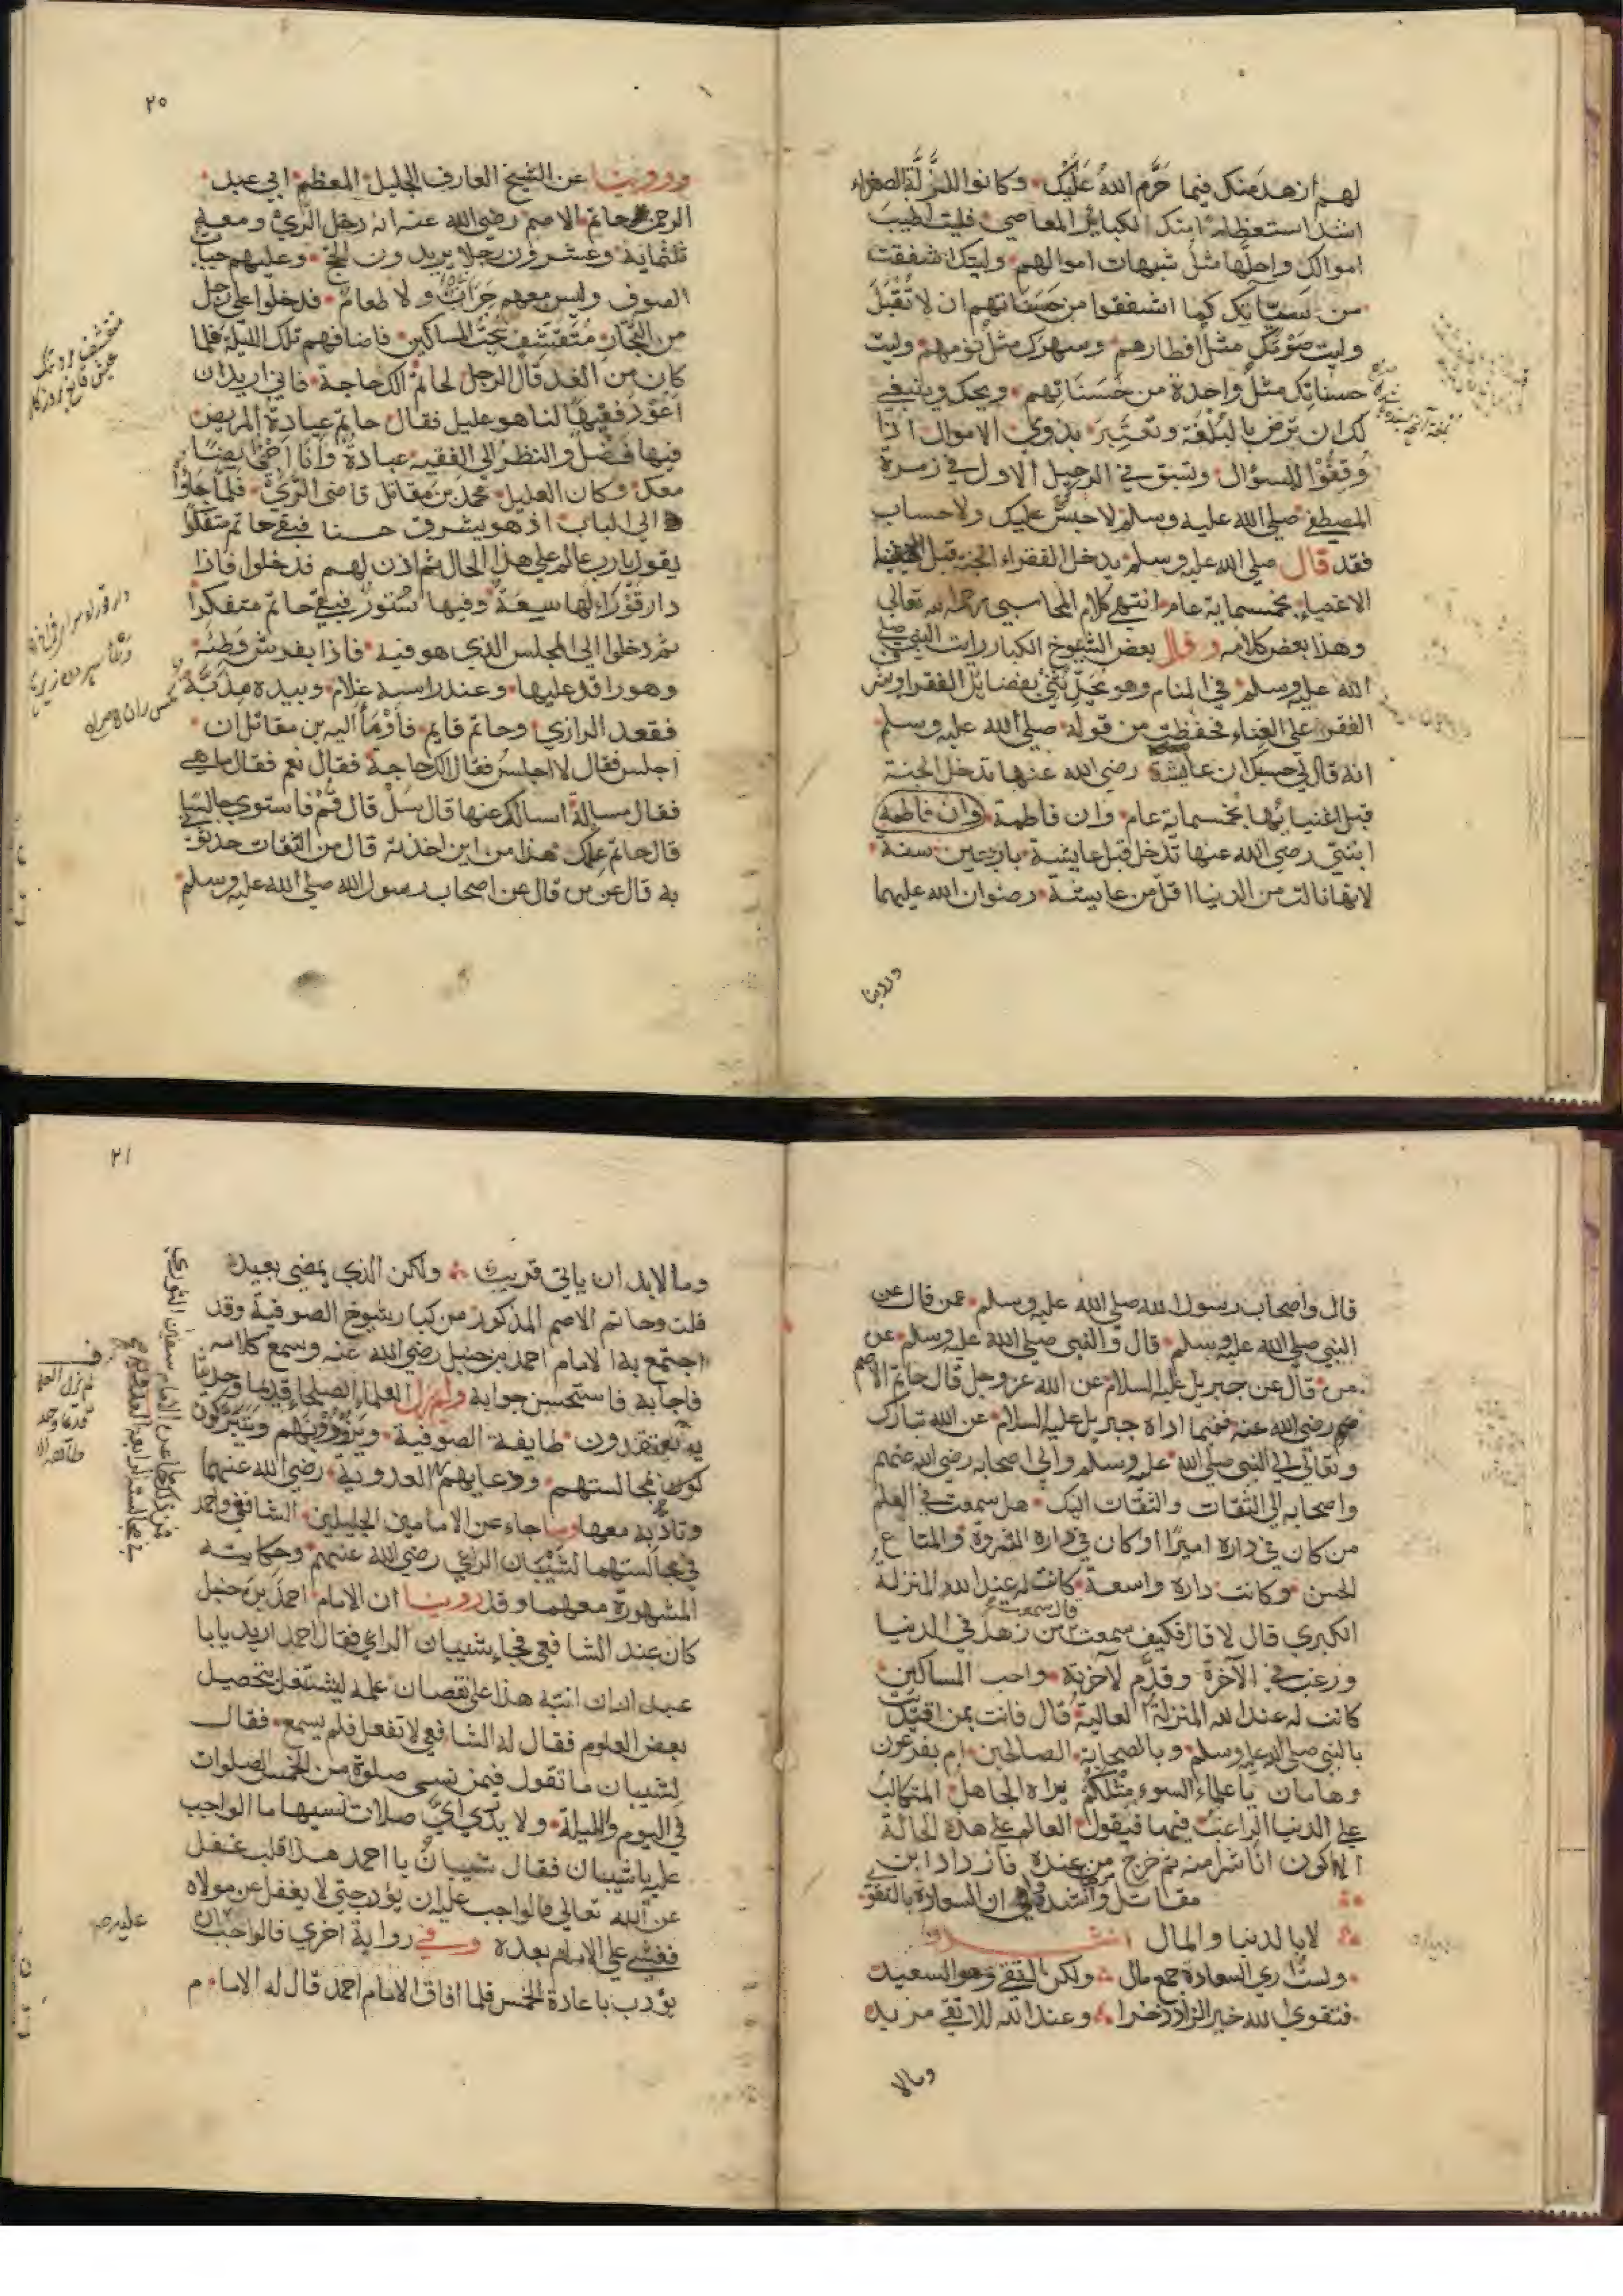 لهم ازهد منك فيما حرم الله عليك وكانوا للزلة الصغراء
اشد استعظاما منك لكبائر المعاصي فليت اطيب
اموالك واحلها مثل شبهات اموالهم وليتك اشفقت
من سيئاتك كما اشفقوا من حسناتهم ان لا تقبل
وليت صومك مثل افطارهم وسهرك مثل نومهم وليت
حسناتك مثل واحدة من حسناتهم ويحك وينبغي
لك ان ترض بالبلغة وتعتبر بذوي الاموال اذا
وقفوا للسؤال وتسبق في الرعيل الاول في زمرة
المصطفى صلي الله عليه وسلم لا حبس عليك ولا حساب
فقد قال صلي الله عليه وسلم يدخل الفقراء الجنة قبل
الاغنياء بخمسماية عام انتهي كلام المحاسبي رحمه الله تعالي
وهذا بعض كلامه وقال بعض الشيوخ الكبار رايت النبي صلي
الله عليه وسلم في المنام وهو يحدثني بفضايل الفقر وشرف
الفقر علي الغناء فحفظت من قوله صلي الله عليه وسلم
انه قال لي حسبك ان عايشة رضي الله عنها تدخل الجنة
قبل اغنيائها بخمسماية عام وان فاطمة وان فاطمة
ابنتي رضي الله عنها تدخل قبل عايشة باربعين سنة
لانها نالت من الدنيا اقل من عايشة رضوان الله عليهما
وروينا
٢٥
وروينا عن الشيخ العارف الجليل المعظم ابي عبد
الرحمن حاتم الاصم رضي الله عنه انه دخل الري ومعه
ثلثماية وعشرون رجلا يريدون الحج وعليهم جباب
الصوف وليس معهم جراب ولا طعام فدخلوا علي رجل
من التجار متقشف يحب المساكين فاضافهم تلك الليلة فلما
كان من الغد قال الرجل لحاتم الك حاجة فاني اريد ان
اعود فقيها لنا هو عليل فقال حاتم عيادة المريض
فيها فضل والنظر الي الفقيه عبادة وانا اجئ ايضا
معك وكان العليل محمد بن مقاتل قاضي الري فلما جاؤا
الي الباب اذ هو يشرق حسنا فبقي حاتم متفكرا
يقول يا رب عالم علي هذا الحال ثم اذن لهم فدخلوا فاذا
دار قوراء لها سعة وفيها ستور فبقي حاتم متفكرا
ثم دخلوا الي المجلس الذي هو فيه فاذا بفرش وطئة
وهو راقد عليها وعند راسه غلام وبيده مذبة
فقعد الرازي وحاتم قايم فاومأ اليه بن مقاتل ان
اجلس فقال لا اجلس فقال الك حاجة فقال نعم فقال ما هي
فقال مسالة اسالك عنها قال سل قال قم فاستوي جالسا
قال حاتم علمك هذا من اين اخذته قال من الثقات حدثوني
به قال عن من قال عن اصحاب رسول الله صلي الله عليه وسلم
قال واصحاب رسول الله صلي الله عليه وسلم عمن قال عن
النبي صلي الله عليه وسلم قال والنبي صلي الله عليه وسلم عن
من قال عن جبريل عليه السلام عن الله عز وجل قال حاتم الاصم
رضي الله عنه ففيما اداه جبريل عليه السلام عن الله تبارك
وتعالي الي النبي صلي الله عليه وسلم والي اصحابه رضي الله عنهم
واصحابه الي الثقات والثقات اليك هل سمعت في العلم
من كان في داره اميرا او كان في داره الثروة والمتاع
الحسن وكانت داره واسعة كانت له عند الله المنزلة
الكبري قال لا قال فكيف سمعت قال سمعت من زهد في الدنيا
ورغب في الآخرة وقدم لآخرته واحب المساكين
كانت له عند الله المنزلة العالية قال فانت بمن اقتديت
بالنبي صلي الله عليه وسلم وبالصحابة الصالحين ام بفرعون
وهامان يا علماء السوء مثلكم يراه الجاهل المتكالب
علي الدنيا الراغب فيها فيقول العالم علي هذه الحالة
الا اكون انا شرا منه ثم خرج من عنده فازداد ابن
مقاتل ان السعادة بالتقوي
لا بالدنيا والمال انشدوا
ولست اري السعادة جمع مال ولكن التقي هو السعيد
فتقوي الله خير الزاد ذخرا وعند الله للاتقي مزيد
ومالا
٢١
وما لا بد ان ياتي قريب ولكن الذي يمضي بعيد
قلت وحاتم الاصم المذكور من كبار شيوخ الصوفية وقد
اجتمع به الامام احمد بن حنبل رضي الله عنه وسمع كلامه
فاجابه فاستحسن جوابه ولم يزل العلماء الصلحاء قديما وحديثا
يعتقدون طايفة الصوفية ويزورونهم ويتبركون
بمجالستهم ودعايهم العدوية رضي الله عنهما
وتادبه معها وما جاء عن الامامين الجليلين الشافعي واحمد
في مجالستهما لشيبان الراعي رضي الله عنهم وحكايته
المشهورة معهما وقد روينا ان الامام احمد بن حنبل
كان عند الشافعي فجاء شيبان الراعي فقال احمد اريد يا ابا
عبد الله ان انبه هذا علي نقصان علمه ليشتغل بتحصيل
بعض العلوم فقال له الشافعي لا تفعل فلم يسمع فقال
لشيبان ما تقول فيمن نسي صلوة من الخمس الصلوات
في اليوم والليلة ولا يدري اي صلات نسيها ما الواجب
عليه يا شيبان فقال شيبان يا احمد هذا قلب غفل
عن الله تعالي فالواجب عليه ان يؤدب حتي لا يغفل عن مولاه
فغشي علي الامام بعده وفي رواية اخري فالواجب ان
يؤدب باعادة الخمس فلما افاق الامام احمد قال له الامام